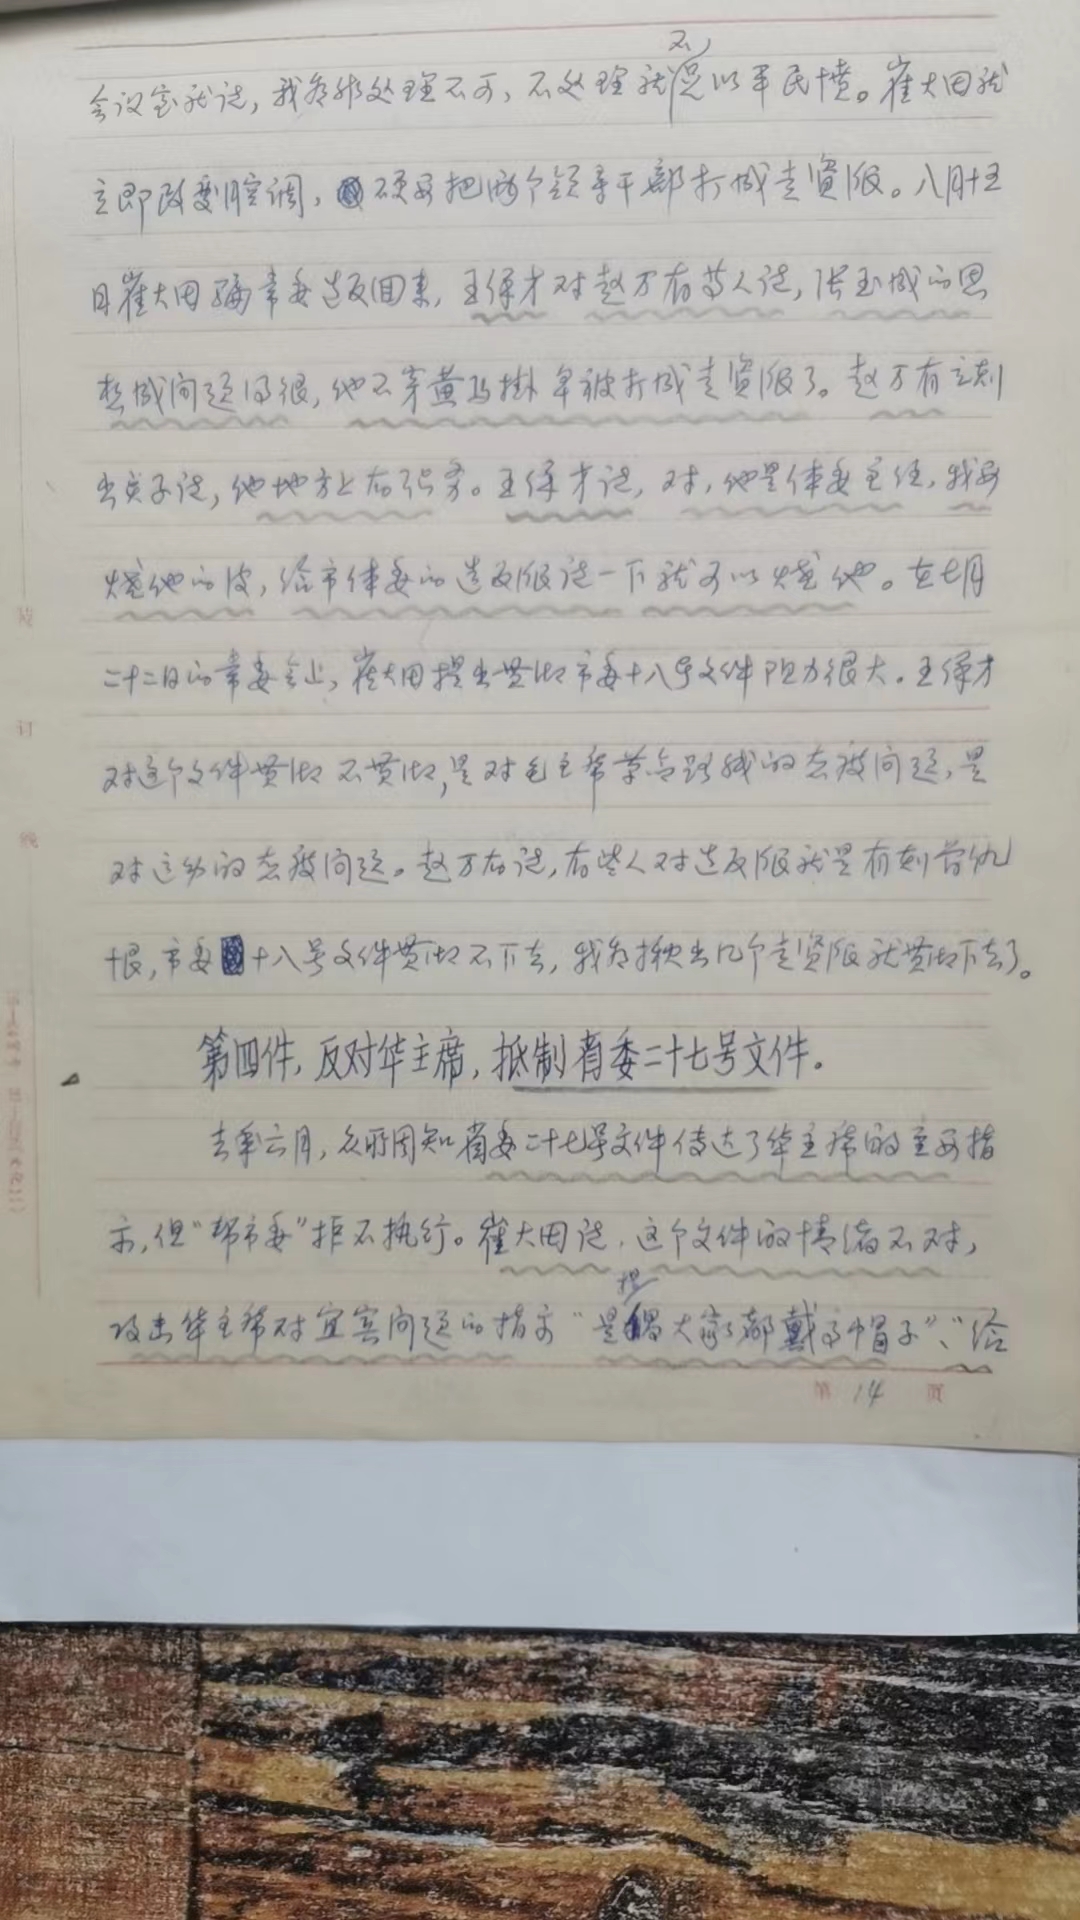 会议室就说，我看非处理不可，不处理就不足以平民愤。崔大田就
立即改变腔调，硬要把两个领导干部打成走资派。八月十五
日崔大田骗常委造反回来，王保才对赵万有等人说，张玉成的思
想成问题得很，他不穿黄马褂早被打成走资派了。赵万有立刻
出点子说，他地方上有职务。王保才说，对，他是体委主任，我要
烧他的皮，给市体委的造反派说一下就可以烧他。在七月
二十二日的常委会上，崔大田提出贯彻市委十八号文件阻力很大。王保才
对这个文件贯彻不贯彻，是对毛主席革命路线的态度问题，是
对运动的态度问题。赵万有说，有些人对造反派就是有刻骨仇
恨，市委十八号文件贯彻不下去，我看揪出几个走资派就贯彻下去了。
第四件，反对华主席，抵制省委二十七号文件。
去年六月，众所周知省委二十七号文件传达了华主席的重要指
示，但“帮市委”拒不执行。崔大田说，这个文件的情绪不对，
攻击华主席对宜宾问题的指示“是提大家都戴高帽子”、“给
第 14 页
订
线